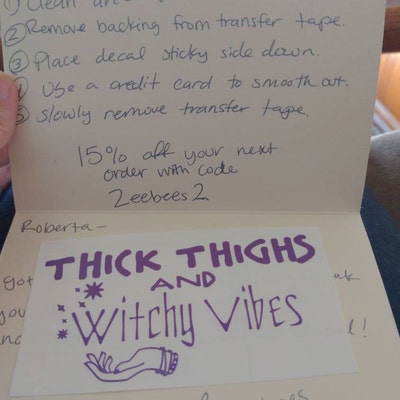 ① Clean
② Remove backing from transfer tape.
③ Place decal sticky side down.
④ Use a credit card to smooth out.
⑤ Slowly remove transfer tape.
15% off your next
order with code
Zeebees2
Roberta-
THICK THIGHS
AND
Witchy Vibes